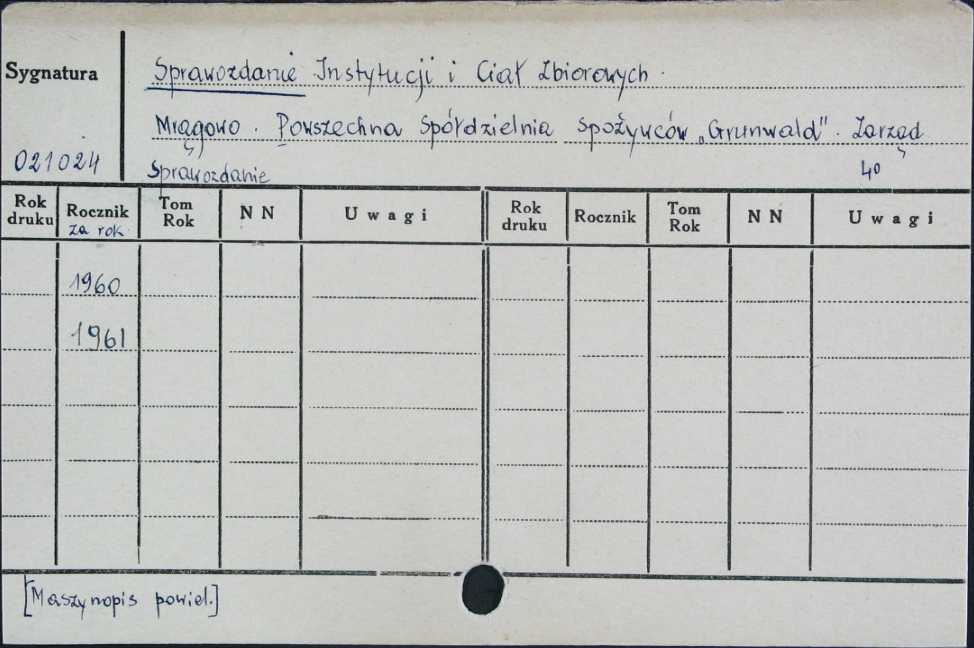 Sygnatura
Sprawozdanie Instytucji i Ciał Zbiorowych
Mrągowo. Powszechna Spółdzielnia Spożywców „Grunwald". Zarząd
021024
Sprawozdanie
40
Rok druku Rocznik za rok Tom Rok NN Uwagi Rok druku Rocznik Tom Rok NN Uwagi
1960
1961
[Maszynopis powiel.]